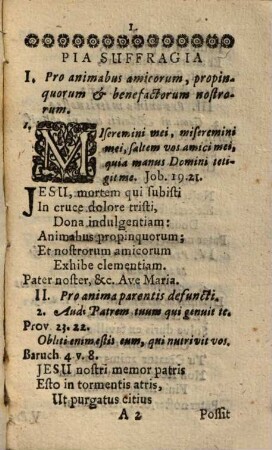 1.
PIA SUFFRAGIA
I. Pro animabus amicorum, propin-
quorum & benefactorum nostro-
rum.
1, MIseremini mei, miseremini
mei, saltem vos amici mei,
quia manus Domini teti-
git me. Job. 19. 21.
JESU, mortem qui subisti
In cruce dolore tristi,
Dona indulgentiam:
Animabus propinquorum;
Et nostrorum amicorum
Exhibe clementiam.
Pater noster, &c. Ave Maria.
II. Pro anima parentis defuncti.
2. Audi Patrem tuum qui genuit te.
Prov. 23. 22.
Obliti enim estis eum, qui nutrivit vos.
Baruch 4 v. 8.
JESU nostri memor patris
Esto in tormentis atris,
Ut purgatus citius
A 2 Possit